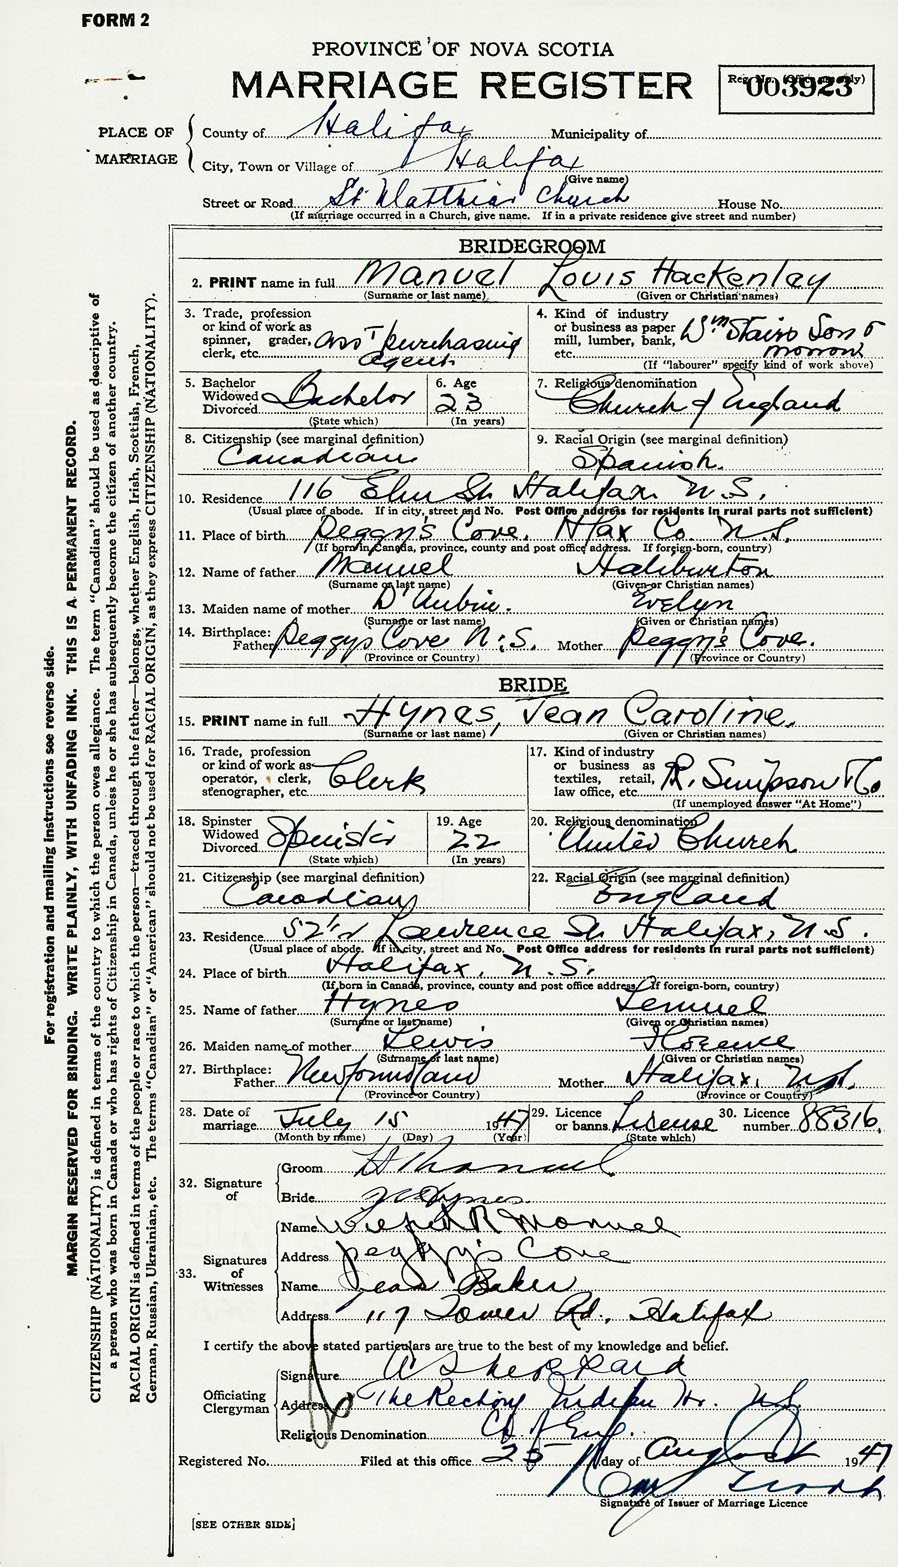 FORM 2
PROVINCE OF NOVA SCOTIA
MARRIAGE REGISTER
Reg. No. (Office use only)
003923
PLACE OF MARRIAGE
County of Halifax Municipality of
City, Town or Village of Halifax
(Give name)
Street or Road St. Matthias Church House No.
(If marriage occurred in a Church, give name. If in a private residence give street and number)
BRIDEGROOM
2. PRINT name in full Manuel Louis Hackenley
(Surname or last name) (Given or Christian names)
3. Trade, profession or kind of work as spinner, grader, clerk, etc. Ass't purchasing agent
4. Kind of industry or business as paper mill, lumber, bank, etc. Wm Stairs Son & Morrow
(If "labourer" specify kind of work above)
5. Bachelor Widowed Divorced Bachelor
(State which)
6. Age 23
(In years)
7. Religious denomination
Church of England
8. Citizenship (see marginal definition)
Canadian
9. Racial Origin (see marginal definition)
Spanish.
10. Residence 116 Elm St. Halifax N.S.
(Usual place of abode. If in city, street and No. Post Office address for residents in rural parts not sufficient)
11. Place of birth Peggy's Cove. Hfax Co. N.S.
(If born in Canada, province, county and post office address. If foreign-born, country)
12. Name of father Manuel Haliburton
(Surname or last name) (Given or Christian names)
13. Maiden name of mother D'Aubin. Evelyn
(Surname or last name) (Given or Christian names)
14. Birthplace: Father Peggys Cove N.S. Mother Peggy's Cove.
(Province or Country) (Province or Country)
BRIDE
15. PRINT name in full Hynes, Jean Caroline.
(Surname or last name) (Given or Christian names)
16. Trade, profession or kind of work as operator, clerk, stenographer, etc. Clerk
17. Kind of industry or business as textiles, retail, law office, etc. R. Simpson & Co
(If unemployed answer "At Home")
18. Spinster Widowed Divorced Spinster
(State which)
19. Age 22
(In years)
20. Religious denomination
United Church
21. Citizenship (see marginal definition)
Canadian
22. Racial Origin (see marginal definition)
England
23. Residence Lawrence St. Halifax, N.S.
(Usual place of abode. If in city, street and No. Post Office address for residents in rural parts not sufficient)
24. Place of birth Halifax, N.S.
(If born in Canada, province, county and post office address. If foreign-born, country)
25. Name of father Hynes Lemuel
(Surname or last name) (Given or Christian names)
26. Maiden name of mother Lewis Florence
(Surname or last name) (Given or Christian names)
27. Birthplace: Father Newfoundland Mother Halifax, N.S.
(Province or Country) (Province or Country)
28. Date of marriage July 15 1947
(Month by name) (Day) (Year)
29. Licence or banns License
(State which)
30. Licence number 88316.
32. Signature of
Groom H Manuel
Bride J C Hynes.
33. Signatures of Witnesses
Name R Manuel
Address Peggy's Cove
Name Jean Baker
Address 117 Tower Rd., Halifax
I certify the above stated particulars are true to the best of my knowledge and belief.
Officiating Clergyman
Signature A Sheppard
Address The Rectory Indian Hr. N.S.
Religious Denomination Ch. of Eng.
Registered No. Filed at this office 25 day of August 1947
Signature of Issuer of Marriage Licence
[SEE OTHER SIDE]
For registration and mailing instructions see reverse side.
MARGIN RESERVED FOR BINDING. WRITE PLAINLY, WITH UNFADING INK. THIS IS A PERMANENT RECORD.
CITIZENSHIP (NATIONALITY) is defined in terms of the country to which the person owes allegiance. The term "Canadian" should be used as descriptive of
a person who was born in Canada or who has rights of Citizenship in Canada, unless he or she has subsequently become the citizen of another country.
RACIAL ORIGIN is defined in terms of the people or race to which the person—traced through the father—belongs, whether English, Irish, Scottish, French,
German, Russian, Ukrainian, etc. The terms "Canadian" or "American" should not be used for RACIAL ORIGIN, as they express CITIZENSHIP (NATIONALITY).